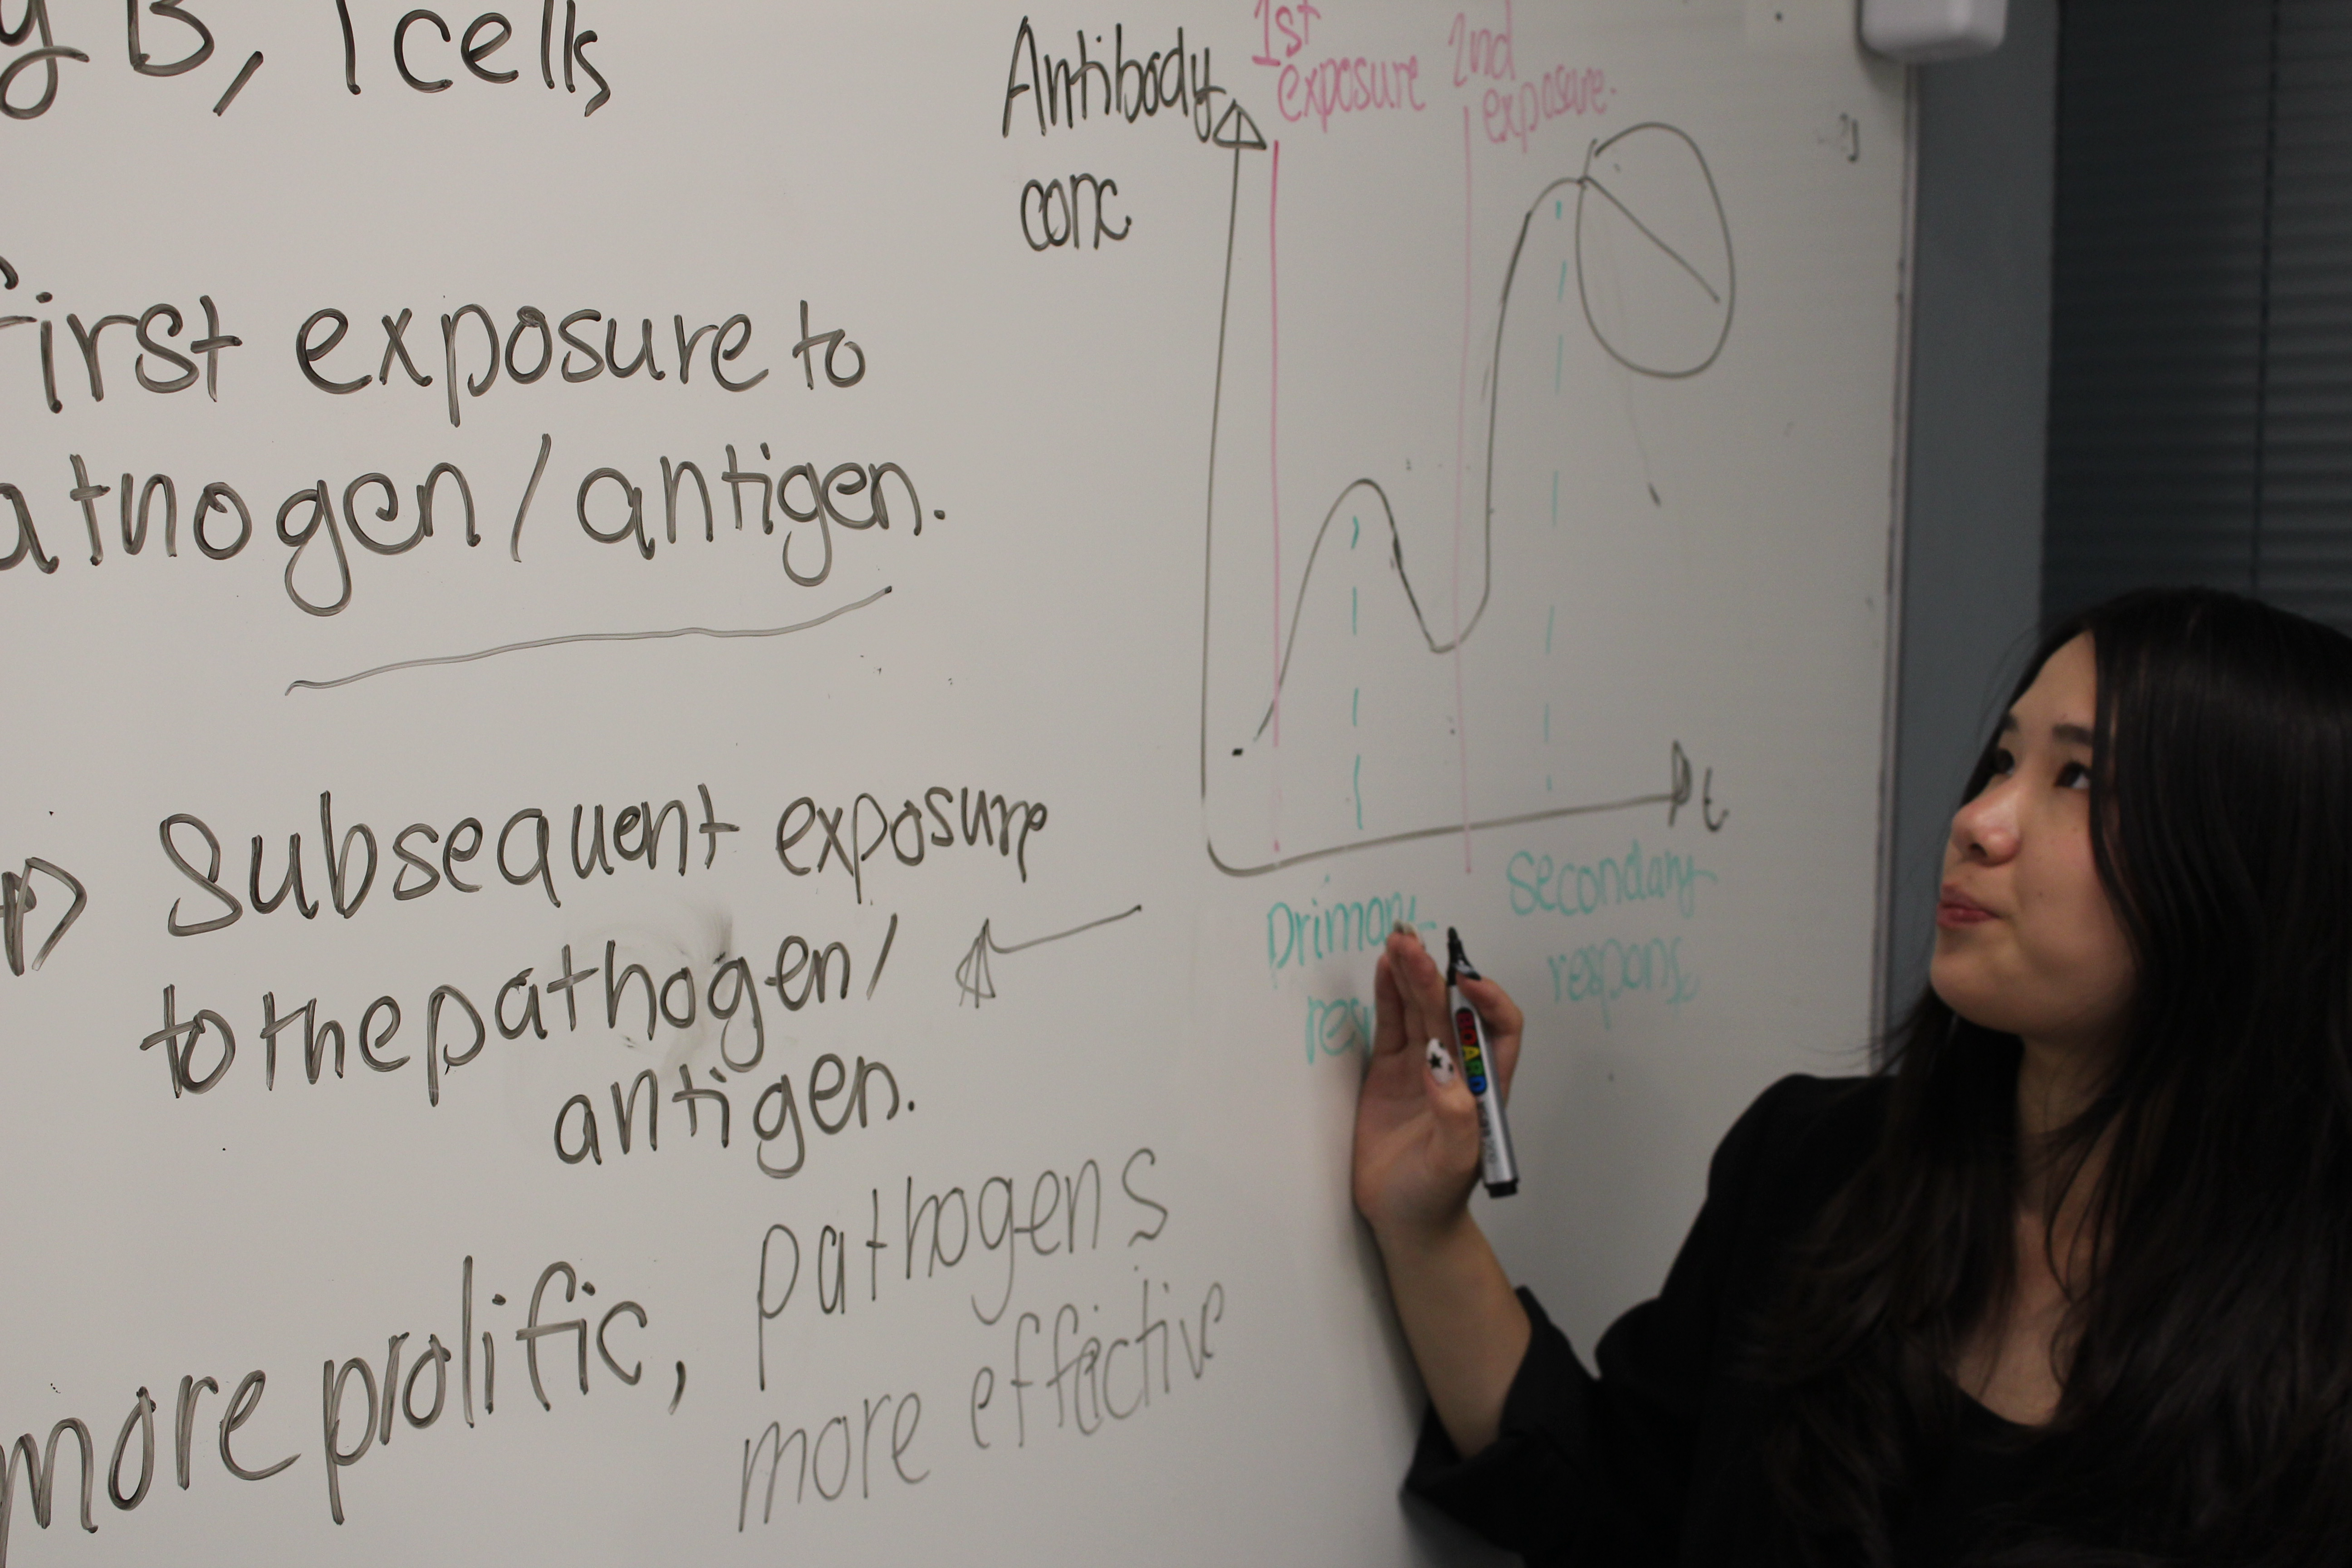 B, T cells
first exposure to
atnogen/antigen.
Subsequent exposure
to the pathogen/
antigen.
more prolific,
pathogens
more effective
Antibody
conc
1st
exposure
2nd
exposure.
t
Primary
Secondary
respons
BOARD